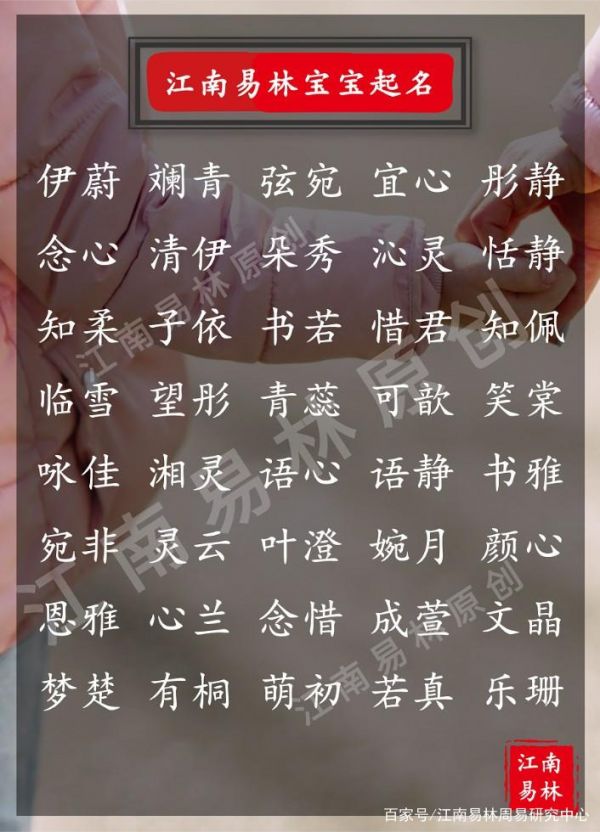 江南易林宝宝起名
伊蔚 斓青 弦宛 宜心 彤静
念心 清伊 朵秀 沁灵 恬静
知柔 子依 书若 惜君 知佩
临雪 望彤 青蕊 可歆 笑棠
咏佳 湘灵 语心 语静 书雅
宛非 灵云 叶澄 婉月 颜心
恩雅 心兰 念惜 成萱 文晶
梦楚 有桐 萌初 若真 乐珊
江南易林原创
江南易林原创
江南易林原创
江南
易林
百家号/江南易林周易研究中心